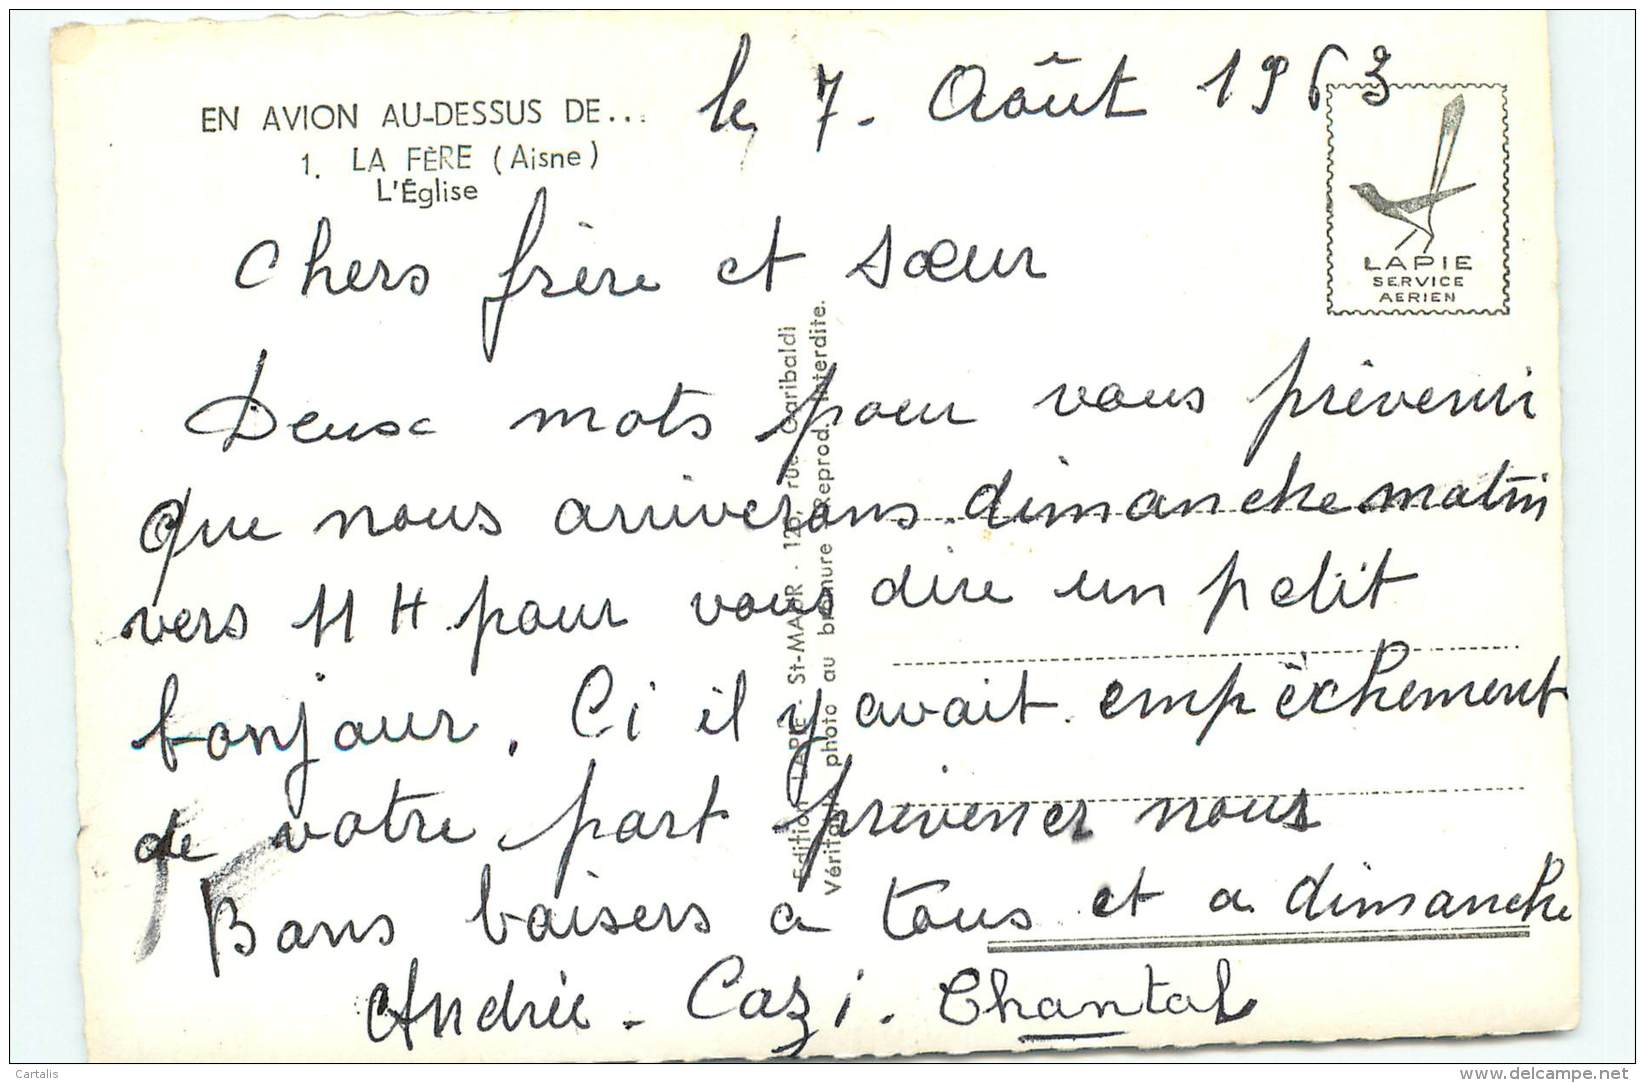 EN AVION AU-DESSUS DE...
1. LA FÈRE (Aisne)
L'Église
le 7. Août 1963
LAPIE
SERVICE
AERIEN
Chers frère et sœur
Deux mots pour vous prévenir
que nous arriverons dimanche matin
vers 11 H pour vous dire un petit
bonjour. Ci il y avait empêchement
de votre part prévener nous
Bons baisers a tous et a dimanche
Andrée - Cazi. Chantal
Edition LAPIE - St-MAUR - rue Garibaldi
photo au bromure Reprod. Interdite.
Cartalis
www.delcampe.net